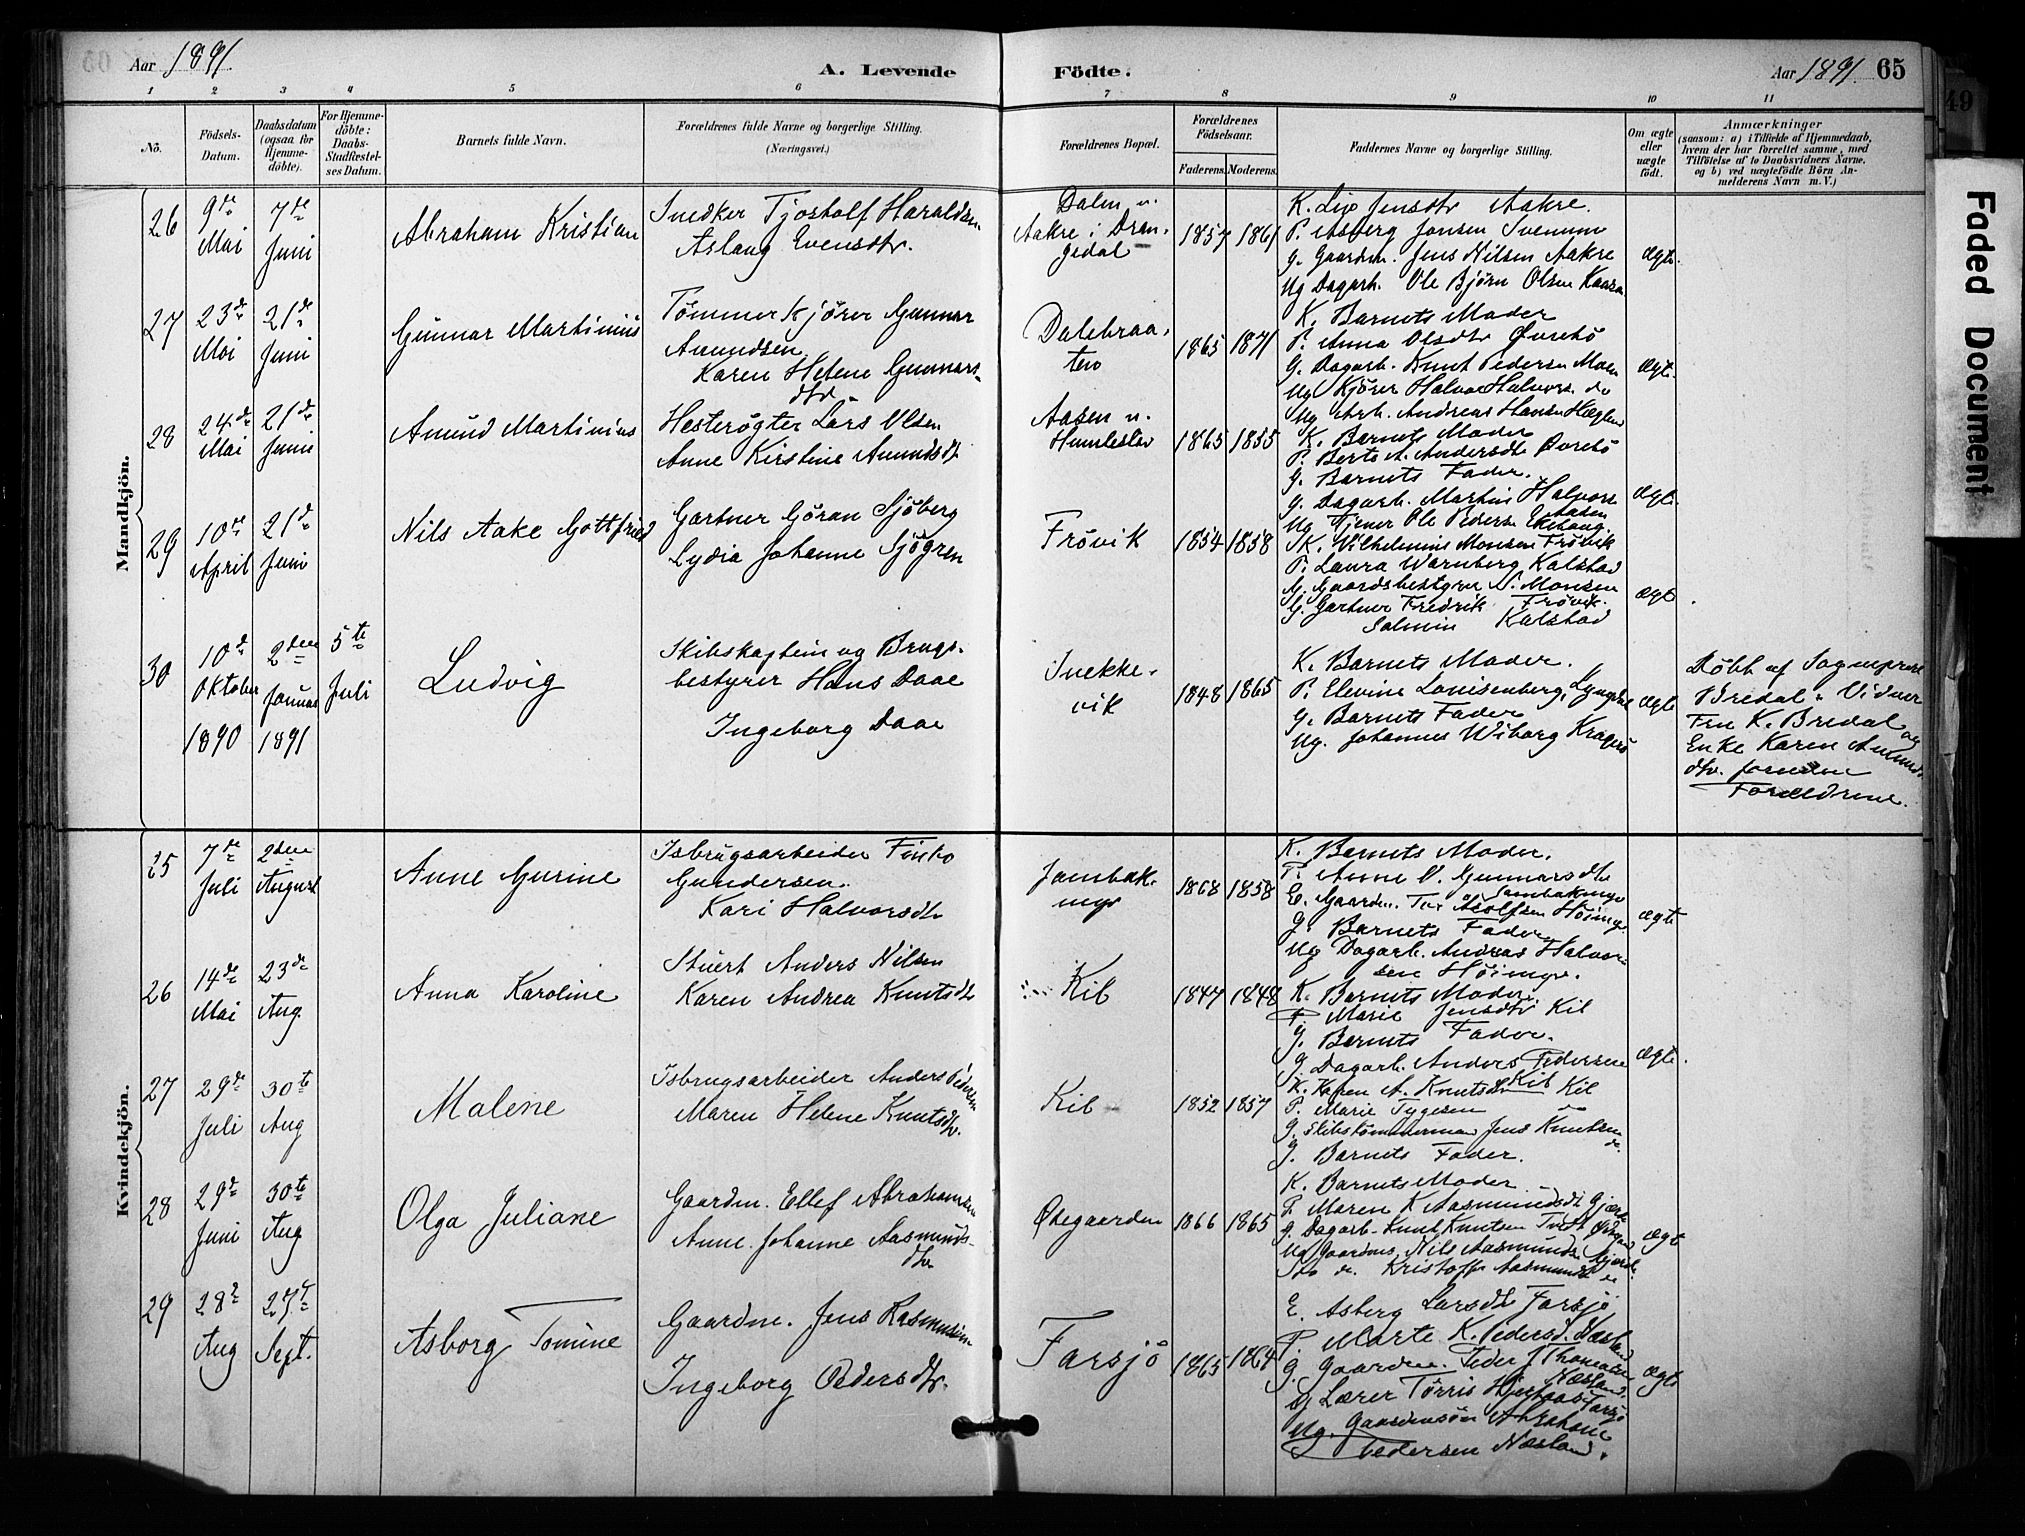 Aar 1891.
A. Levende Födte.
Aar 1891. 65
49
Faded Document
1 2 3 4 5 6 7 8 9 10 11
No.
Födsels-Datum.
Daabsdatum (ogsaa for Hjemme-döbte).
For Hjemme-döbte: Daabs-Stadfæstel-ses Datum.
Barnets fulde Navn.
Forældrenes fulde Navne og borgerlige Stilling.
(Næringsvei.)
Forældrenes Bopæl.
Forældrenes Födselsaar.
Faderens. Moderens.
Faddernes Navne og borgerlige Stilling.
Om ægte eller uægte født.
Anmærkninger
(saasom: a) i Tilfælde af Hjemmedaab,
hvem der har forrettet samme, med
Tilföielse af to Daabsvidners Navne,
og b) ved uægtefödte Börn An-
melderens Navn m. V.)
Mandkjön.
26
9de Mai
7de Juni
Abraham Kristian
Snedker Tjostolf Haraldsen
Aslaug Evensdtr.
Dalen u. Aakre i Drangedal
1857 1861
K. Liv Jensdtr Aakre.
P. Asberg Jonsen
G. Gaardm. Jens Nilsen Aakre
Ug Dagarb. Ole Bjørn Olsen
Ægte.
27
23de Mai
21de Juni
Gunnar Martinius
Tømmerkjører Gunnar
Amundsen
Karen Helene Gunnars-
dtr
Dalebraaten
1865 1871
K. Barnets Moder
P. Anna Olsdtr
G. Dagarb. Knut Pedersen Moen
Ug Kjører Halvor Halvors. do
Ug Arb. Andreas Hansen
Ægt.
28
24de Mai
21de Juni
Amund Martinius
Hesterøgter Lars Olsen
Anne Kirstine Amundsdtr
Aasen u. Humlestøv
1865 1855
K. Barnets Moder
P. Berte A. Andersdtr
G. Barnets Fader.
G. Dagarb. Martin Halvors.
Aasen
Ug Tjener Ole Peders.
Ægt.
29
10de April
21de Juni
Nils Aake Gottfried
Gartner Göran Sjöberg
Lydia Johanne Sjögren
Frövik
1854 1858
K. Vilhelmine Monsen Frövik
P. Laura Warnberg Kalstad
G. Gaardsbestyrer N. Monsen
Frövik.
G. Gartner Fredrik
Salmin Kalstad
ægt.
30
10de Oktober 1890
2den Januar 1891
5te Juli
Ludvig
Skibskaptein og Brugs-
bestyrer Hans Daae
Ingeborg Daae
Snekkevik
1848 1865
K. Barnets Moder.
P. Elevine Louisenberg,
G. Barnets Fader
Ug. Johannes Wiborg Kragerö
ægt
Döbt af Sogneprest
Bredal. Vidner
Fru K. Bredal og
Enke Karen Amunds
dtr.
Forældrene.
Kvindekjön.
25
7de Juli
2den August
Anne Gurine
Isbrugsarbeider
Gundersen.
Kari Halvorsdtr
Jambakmyr
1868 1858
K. Barnets Moder.
P. Anne V. Gunnarsdtr
Jambakmyr
E. Gaardm. Tor Adolfsen Höimyr
G. Barnets Fader
Ug Dagarb. Andreas Halvor-
sen Höimyr.
ægt
26
14de Mai
23de Aug.
Anna Karoline
Stuert Anders Nilsen
Karen Andrea Knutsdtr
Kil
1847 1848
K. Barnets Moder.
P. Marie Jensdtr Kil
G. Barnets Fader.
G. Dagarb. Anders Pedersen
Kil
ægt.
27
29de Juli
30te Aug
Malene
Isbrugsarbeider Anders Pedersen
Maren Helene Knutsdtr.
Kil
1852 1857
K. Karen A. Knutsdtr Kil
P. Marie Tygesen do
G. Skibstømmermand Jens Knutsen do
G. Barnets Fader.
28
29de Juni
30te Aug
Olga Juliane
Gaardm. Ellef Abrahamsen
Anne Johanne Aasmunds-
dtr
Ødegaarden
1866 1865
K. Barnets Moder
P. Maren K Aasmundsdtr
G. Dagarb. Knut Knutsen
Ug Gaardms. Nils Aasmunds.
do Kristoffer Aasmunds. do
ægt
29
28de Aug
27de Sept.
Asborg Tomine
Gaardm. Jens Rasmussen
Ingeborg Pedersdtr.
Farsjö
1865 1864
E. Asberg Larsdtr Farsjö
P. Marte K. Pedersd. Næsland
G. Gaardm. Peder J Thomassen
Næsland.
Ug Lærer Törris Farsjö
Ug. Gaardmsön Abraham
Pedersen Næsland.
ægt